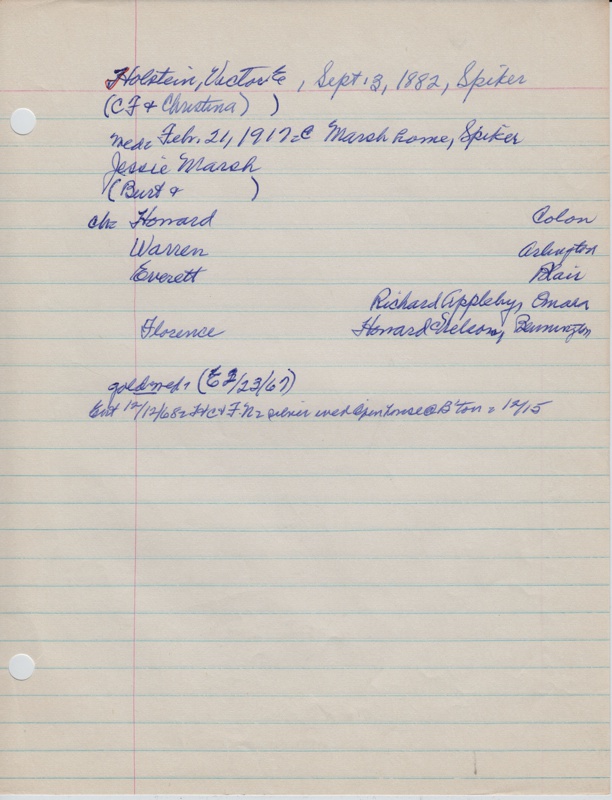 Holstein, Victor E, Sept. 3, 1882, Spiker
(CF & Christina))
wed: Feb. 21, 1917 @ Marsh home, Spiker
Jessie Marsh
(Burt & )
ch: Howard Colon
Warren Arlington
Everett Blair
Richard Appleby, Omaha
Florence Howard Nelson, Bennington
gold wed: (E 2/23/67)
Ent 12/12/68 = silver wed open house @ B'ton = 12/15